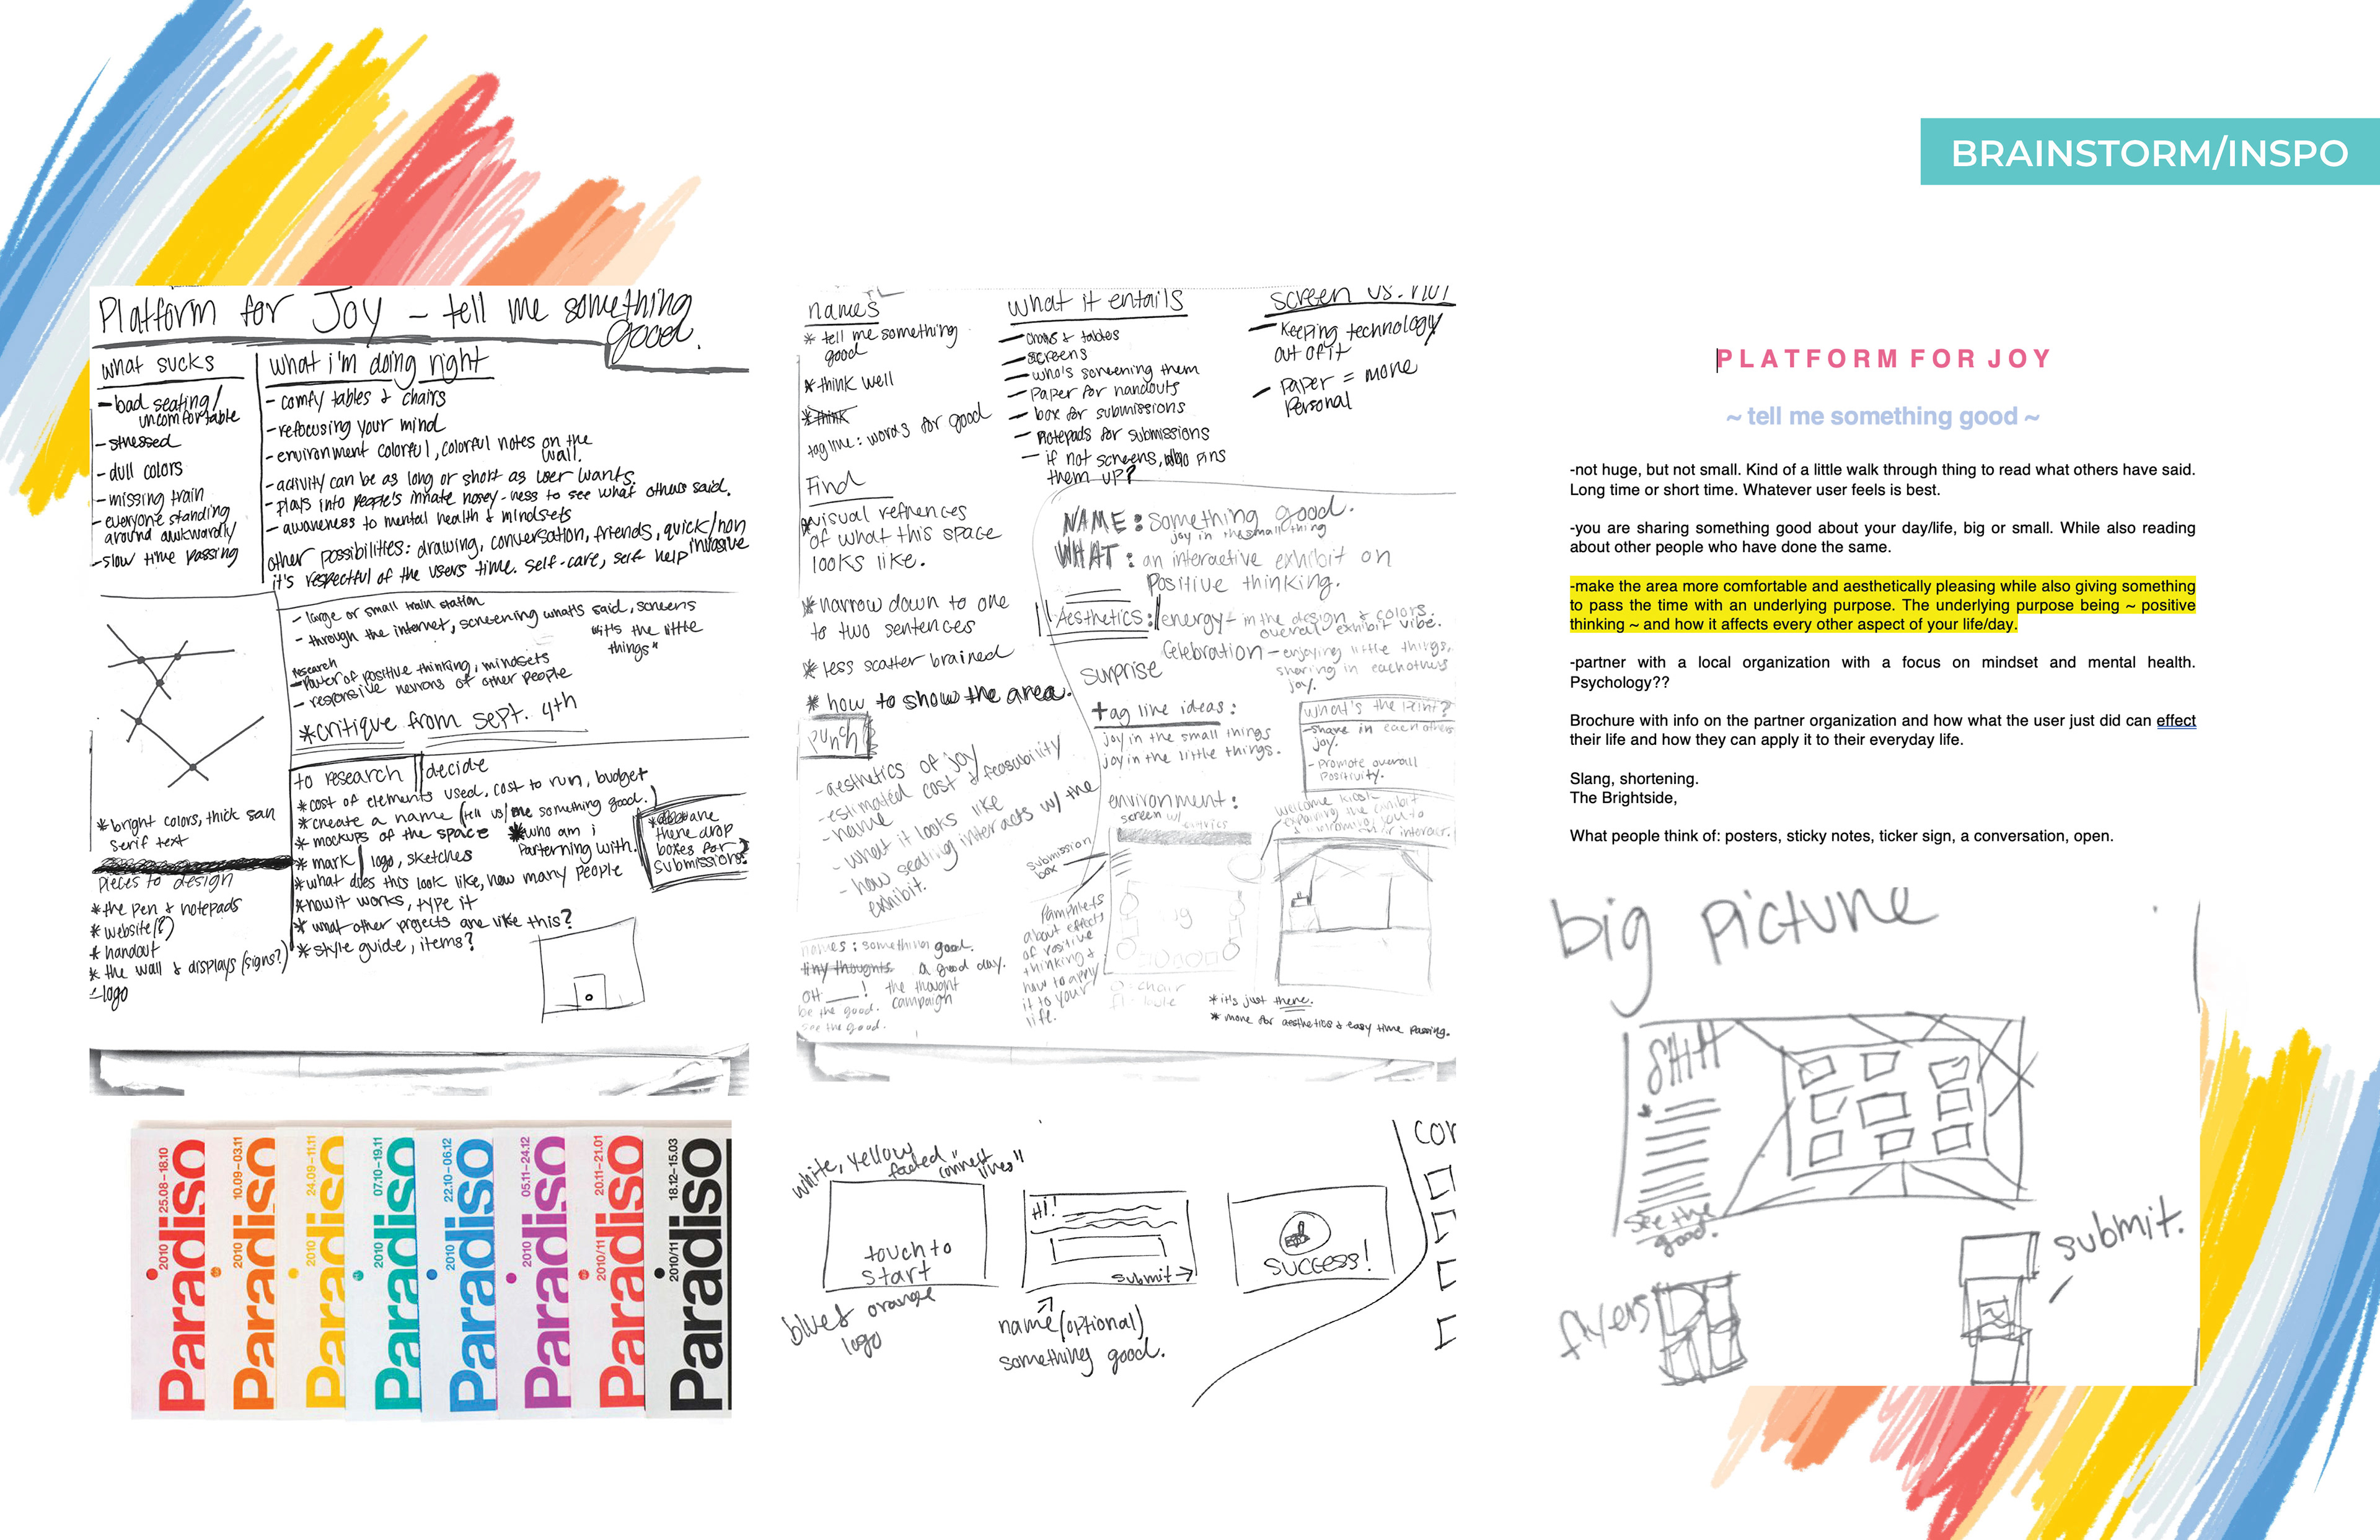 BRAINSTORM/INSPO
Platform for Joy – tell me something
good.
what sucks
– bad seating/
uncomfortable
– stressed
– dull colors
– missing train
– everyone standing
around awkwardly
– slow time passing
what i'm doing right
– comfy tables & chairs
– refocusing your mind
– environment colorful, colorful notes on the
wall.
– activity can be as long or short as user wants.
– plays into people's innate nosey-ness to see what others said.
– awareness to mental health & mindsets
other possibilities: drawing, conversation, friends, quick/non
invasive
it's respectful of the users time. self-care, self help
– large or small train station
– through the internet, screening what's said, screens
"it's the little
things"
research
– Power of positive thinking, mindsets
– responsive neurons of other people
*critique from sept. 4th
*bright colors, thick san
serif text
pieces to design
*the pen & notepads
*website(?)
*handout
*the wall & displays (signs?)
–logo
to research
decide
*cost of elements used, cost to run, budget
*create a name (tell us/me something good.)
*mockups of the space
*who am i
parterning with.
*mark/logo, sketches
*what does this look like, how many people
*how it works, type it
*what other projects are like this?
*style guide, items?
are
there drop
boxes for
submissions?
names
* tell me something
good
* think well
*think
tag line: words for good
Find
*visual refrences
of what this space
looks like.
*narrow down to one
to two sentences
*less scatter brained
*how to show the area.
what it entails
– chairs & tables
– screens
– who's screening them
– Paper for handouts
– box for submissions
– notepads for submissions
– if not screens, who pins
them up?
screen vs. not
– Keeping technology
out of it
– Paper = more
Personal
NAME: something good.
joy in the small thing
WHAT: an interactive exhibit on
Positive thinking.
Aesthetics: energy – in the design & colors.
overall exhibit vibe.
Celebration – enjoying little things,
sharing in eachothers
joy.
surprise
tag line ideas:
joy in the small things
joy in the little things.
what's the point?
– share in each others
joy.
– promote overall
positivity.
punch
– aesthetics of joy
– estimated cost & feasability
– name
– what it looks like
– how seating interacts w/ the
exhibit.
environment:
screen w/
submission
box
welcome kiosk
explaining the exhibit
Pamphlets
about effects
of positive
thinking &
how to apply
it to your
life.
names: something good.
tiny thoughts
a good day.
OH ___!
the thought
campaign
be the good.
see the good.
*it's just there.
*more for aesthetics & easy time passing.
PLATFORM FOR JOY
~ tell me something good ~
-not huge, but not small. Kind of a little walk through thing to read what others have said.
Long time or short time. Whatever user feels is best.
-you are sharing something good about your day/life, big or small. While also reading
about other people who have done the same.
-make the area more comfortable and aesthetically pleasing while also giving something
to pass the time with an underlying purpose. The underlying purpose being ~ positive
thinking ~ and how it affects every other aspect of your life/day.
-partner with a local organization with a focus on mindset and mental health.
Psychology??
Brochure with info on the partner organization and how what the user just did can effect
their life and how they can apply it to their everyday life.
Slang, shortening.
The Brightside,
What people think of: posters, sticky notes, ticker sign, a conversation, open.
big picture
see the
good.
flyers
submit.
Paradiso 2010 25.08–18.10
Paradiso 2010 10.09–03.11
Paradiso 2010 24.09–11.11
Paradiso 2010 07.10–19.11
Paradiso 2010 22.10–06.12
Paradiso 2010 05.11–24.12
Paradiso 2010/11 20.11–21.01
Paradiso 2010/11 18.12–15.03
white, yellow
faded "connect
lines"
touch to
start
blue & orange
logo
Hi!
submit→
name (optional)
something good.
SUCCESS!
COM